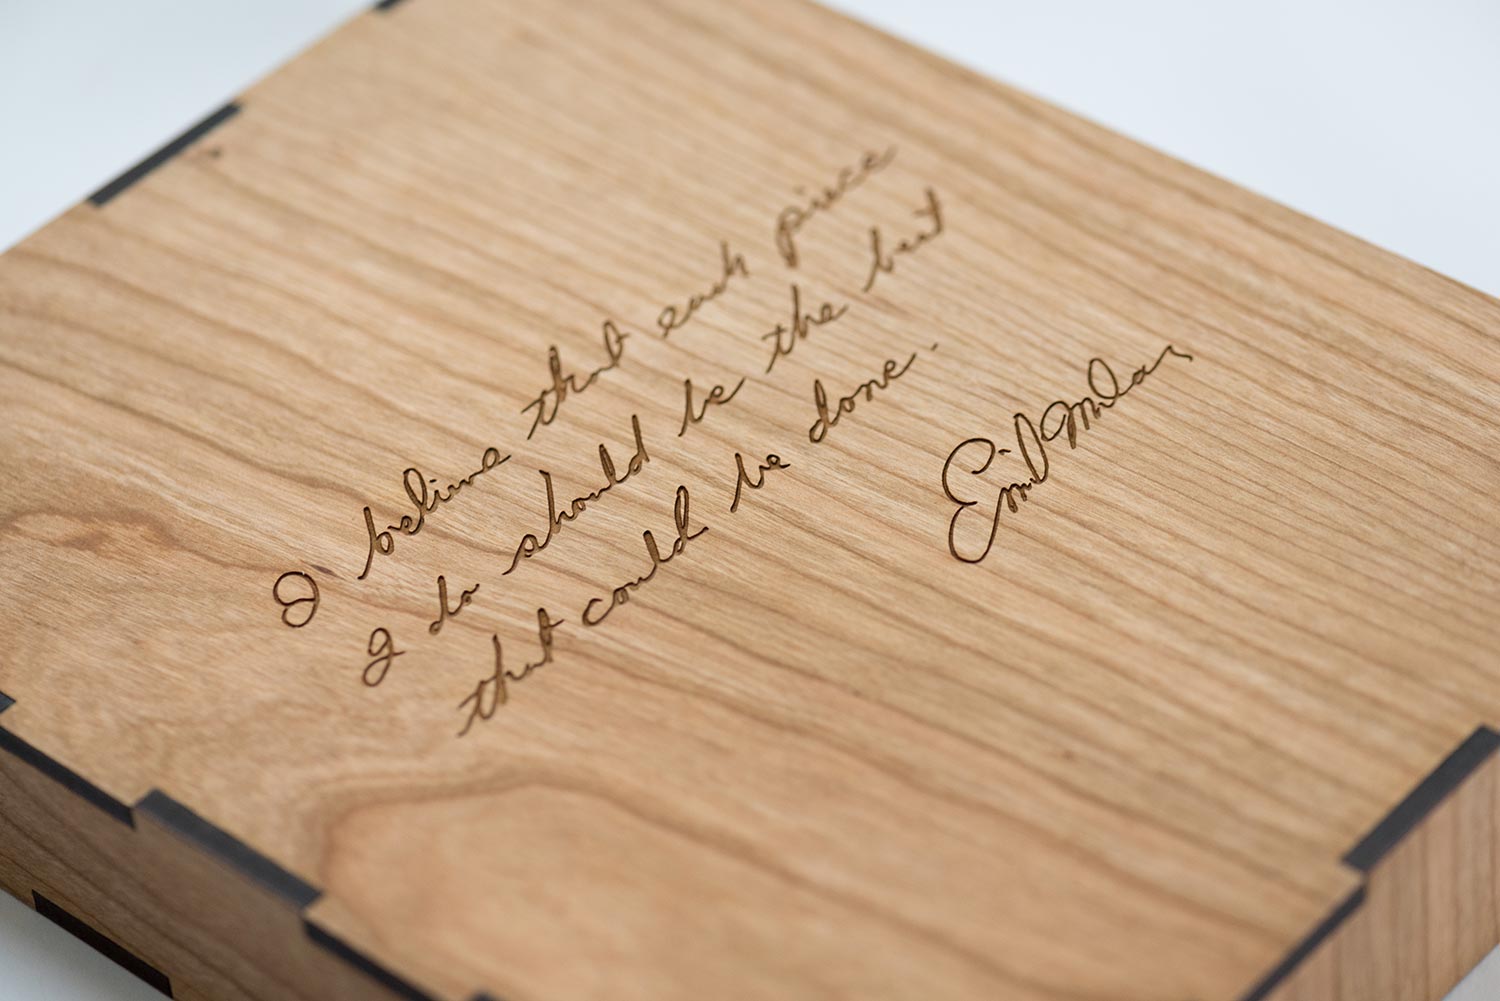 I believe that each piece
I do should be the best
that could be done.
Emil Milan